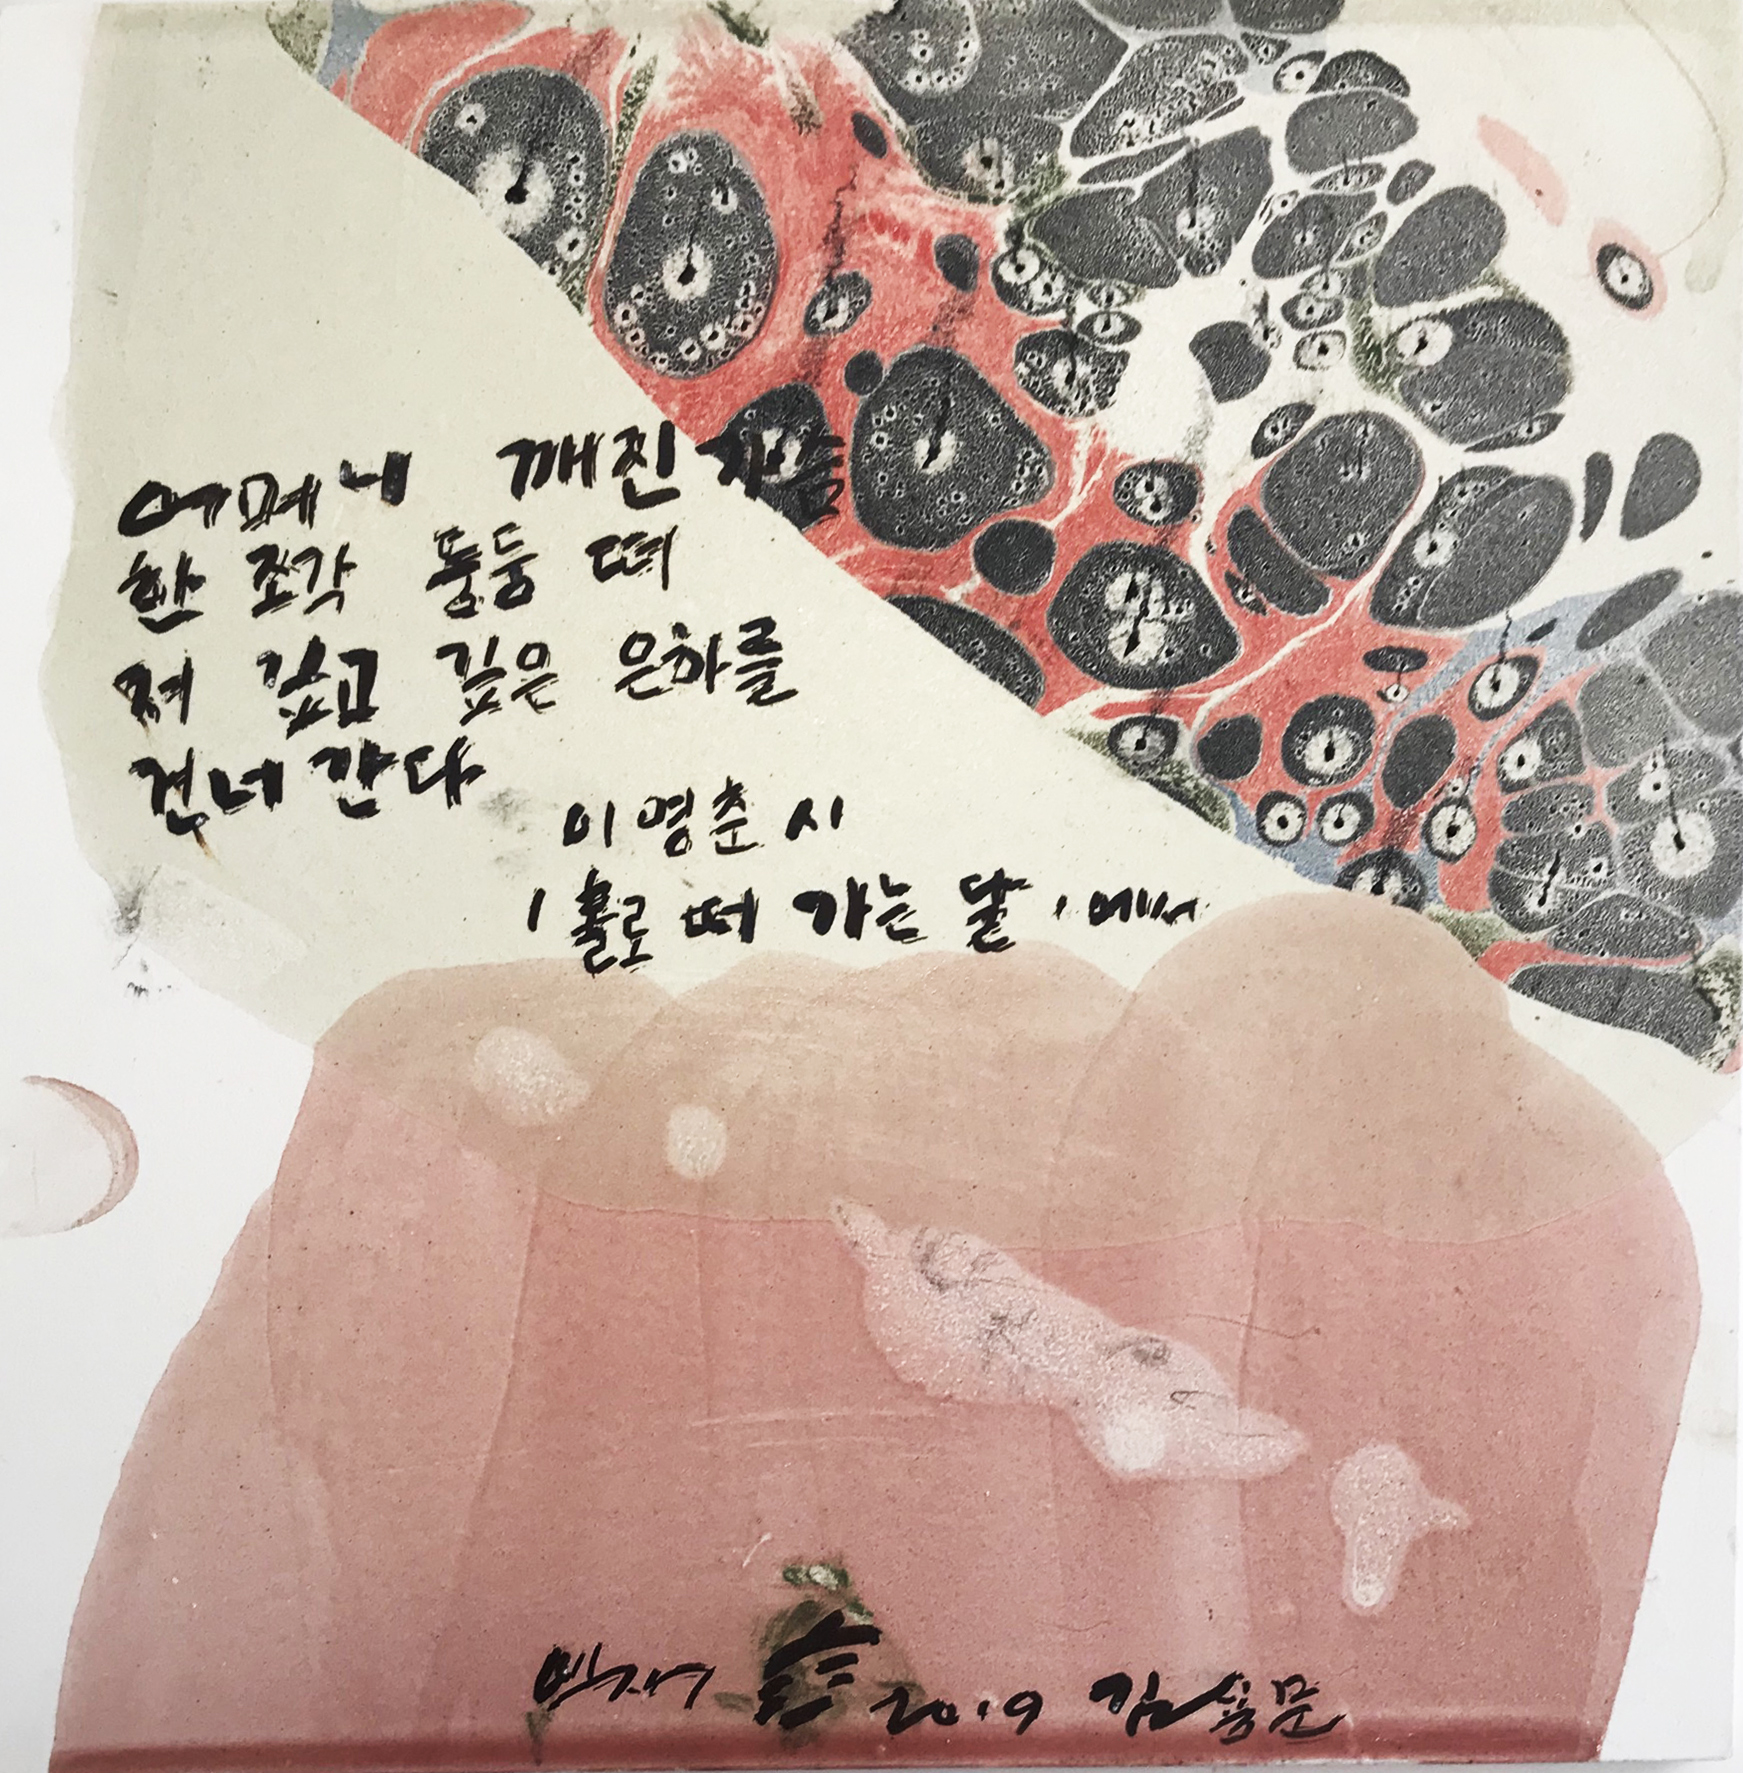 어머니 깨진 가슴
한 조각 둥둥 떠
저 깊고 깊은 은하를
건너간다
이영춘 시
'홀로 떠 가는 달'에서
2019 김용문